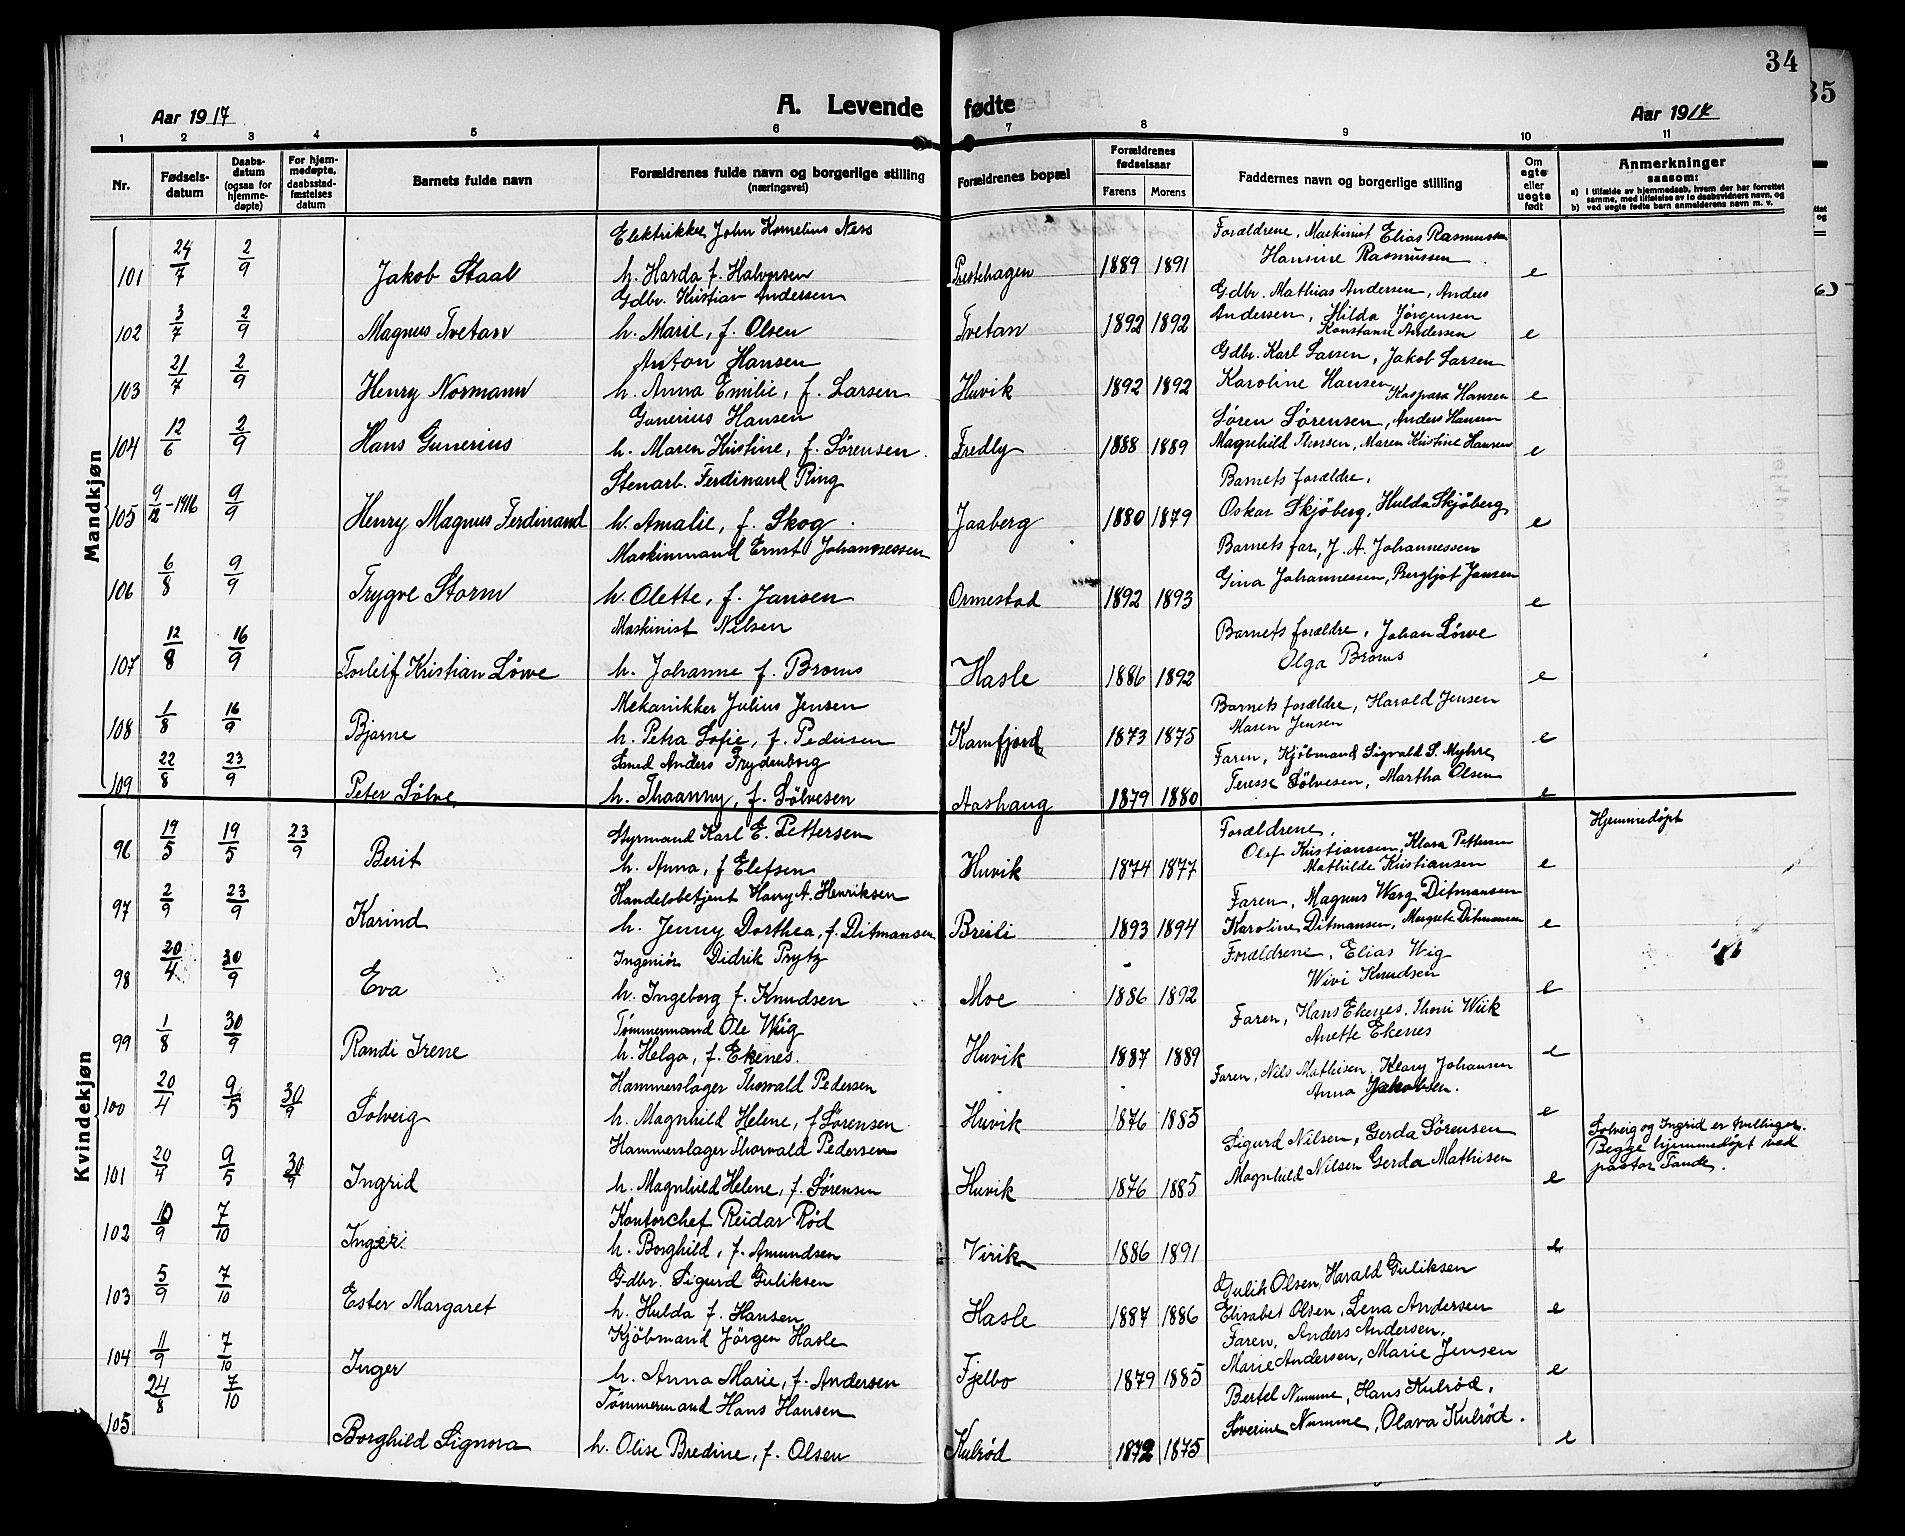 34
35
Aar 1917
A. Levende fødte
Aar 1917
1 2 3 4 5 6 7 8 9 10 11
Nr.
Fødsels-
datum
Daabs-
datum
(ogsaa for
hjemme-
døpte)
For hjem-
medøpte,
daabsstad-
fæstelses
datum
Barnets fulde navn
Forældrenes fulde navn og borgerlige stilling
(næringsvei)
Forældrenes bopæl
Forældrenes
fødselsaar
Farens Morens
Faddernes navn og borgerlige stilling
Om
egte
eller
uegte
født
Anmerkninger
saasom:
a) i tilfælde av hjemmedaab, hvem der har forrettet
samme, med tilføielse av to daabsvidners navn, og
b) ved uegte fødte barn anmelderens navn m. v.
Mandkjøn
Elektrikker John Kornelius Ness Forældrene, Maskinist Elias Rasmussen
101 24/7 2/9 Jakob Staal h. Harda f. Halvorsen Prestehagen 1889 1891 Hansine Rasmussen e
Gdbr. Kristian Andersen Gdbr. Mathias Andersen, Anders
102 3/7 2/9 Magnus Tvetan h. Marie, f. Olsen Tvetan 1892 1892 Andersen, Hilda Jørgensen e
Konstanse Andersen
Anton Hansen Gdbr. Karl Larsen, Jakob Larsen
103 21/7 2/9 Henry Normann h. Anna Emilie, f. Larsen Huvik 1892 1892 Karoline Hansen Kaspara Hansen e
Gunerius Hansen Søren Sørensen, Anders Hansen
104 12/6 2/9 Hans Gunerius h. Maren Kristine, f. Sørensen. Fredly 1888 1889 Magnhild Thorsen, Maren Kristine Hansen e
Stenarb. Ferdinand Ring Barnets forældre,
105 9/12-1916 9/9 Henry Magnus Ferdinand h. Amalie, f. Skog Jaaberg 1880 1879 Oskar Skjøberg, Hulda Skjøberg e
Maskinmand Ernst Johannessen Barnets far, J. A. Johannessen
106 6/8 9/9 Trygve Storm h. Olette, f. Jansen Ormestad 1892 1893 Gina Johannessen, Bergljot Jansen e
Maskinist Nilsen Barnets forældre, Johan Løwe
107 12/8 16/9 Torleif Kristian Løwe h. Johanne f. Broms Hasle 1886 1892 Olga Broms e
Mekanikker Julius Jensen Barnets forældre, Harald Jensen
108 1/8 16/9 Bjarne h. Petra Sofie, f. Pedersen Kamfjord 1873 1875 Maren Jensen e
Smed Anders Frydenborg Faren, Kjøbmand Sigvald S. Myhre
109 22/8 23/9 Peter Sølve h. Thaanny, f. Sølvesen Aashaug 1879 1880 Teresse Sølvesen, Martha Olsen e
Kvindekjøn
Styrmand Karl E. Pettersen Forældrene, Hjemmedøpt
96 19/5 19/5 23/9 Berit h. Anna, f Elefsen Huvik 1874 1877 Olef Kristiansen, Klara Pettersen e
Mathilde Kristiansen
Handelsbetjent Harry A. Henriksen Faren, Magnus Warg Ditmansen
97 2/9 23/9 Karind h. Jenny Dorthea, f. Ditmansen Breili 1893 1894 Karoline Ditmansen, Margrete Ditmansen e
Ingeniør Didrik Prytz Forældrene, Elias Wig
98 20/4 30/9 Eva h. Ingeborg f. Knudsen Moe 1886 1892 Wivi Knudsen e
Tømmermand Ole Wiig Faren, Hans Ekenes, Thoni Wiik
99 1/8 30/9 Randi Irene h. Helga, f. Ekenes. Huvik 1887 1889 Anette Ekenes e
Hammerslager Thorvald Pedersen Faren, Nils Mathisen, Henry Johansen
100 20/4 9/5 30/9 Solveig h. Magnhild Helene, f Sørensen Huvik 1876 1885 Anna Jakobsen. e
Hammerslager Thorvald Pedersen Sigurd Nilsen, Gerda Sørensen Solveig og Ingrid er tvillinger.
101 20/4 9/5 30/9 Ingrid h. Magnhild Helene, f. Sørensen Huvik 1876 1885 Magnhild Nilsen Gerda Mathisen e Begge hjemmedøpt ved
pastor Tande.
Kontorchef Reidar Rød
102 10/9 7/10 Inger h. Borghild, f. Amundsen Virik 1886 1891 e
Gdbr. Sigurd Guliksen Gulik Olsen, Harald Guliksen
103 5/9 7/10 Ester Margaret h. Hulda f. Hansen Hasle 1887 1886 Elisabet Olsen, Lena Andersen e
Kjøbmand Jørgen Hasle Faren, Anders Andersen,
104 11/9 7/10 Inger h. Anna Marie, f. Andersen Fjelbo 1879 1885 Marie Andersen, Marie Jensen e
Tømmermand Hans Hansen Bertel Numme, Hans Kulrød,
105 24/8 7/10 Borghild Signora h. Olise Bredine, f. Olsen Kulrød 1872 1875 Severine Numme, Olava Kulrød. e